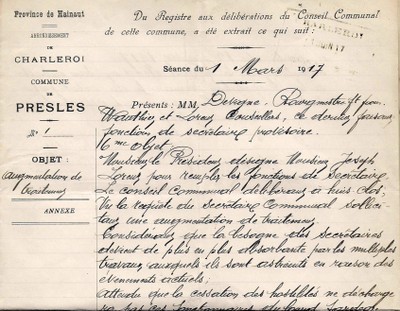 Province de Hainaut
ARRONDISSEMENT
DE
CHARLEROI
COMMUNE
DE
PRESLES
N° 1
OBJET :
Augmentation de
traitement
ANNEXE
Du Registre aux délibérations du Conseil Communal
de cette commune, a été extrait ce qui suit :
Séance du 1 Mars 1917
Présents : MM, Devigne, Bourgmestre ff
Wauthier et Lorent Conseillers, ce dernier faisant
fonction de secrétaire provisoire.
6me objet.
Monsieur le Président désigne Monsieur Joseph
Lorent pour remplir les fonctions de secrétaire.
Le conseil Communal délibérant à huis clos,
Vu la requête du secrétaire Communal sollici-
tant une augmentation de traitement,
Considérant que la besogne des secrétaires
devient de plus en plus absorbante par les multiples
travaux auxquels ils sont astreints en raison des
événements actuels;
Attendu que la cessation des hostilités ne décharge-
ra pas ces fonctionnaires du